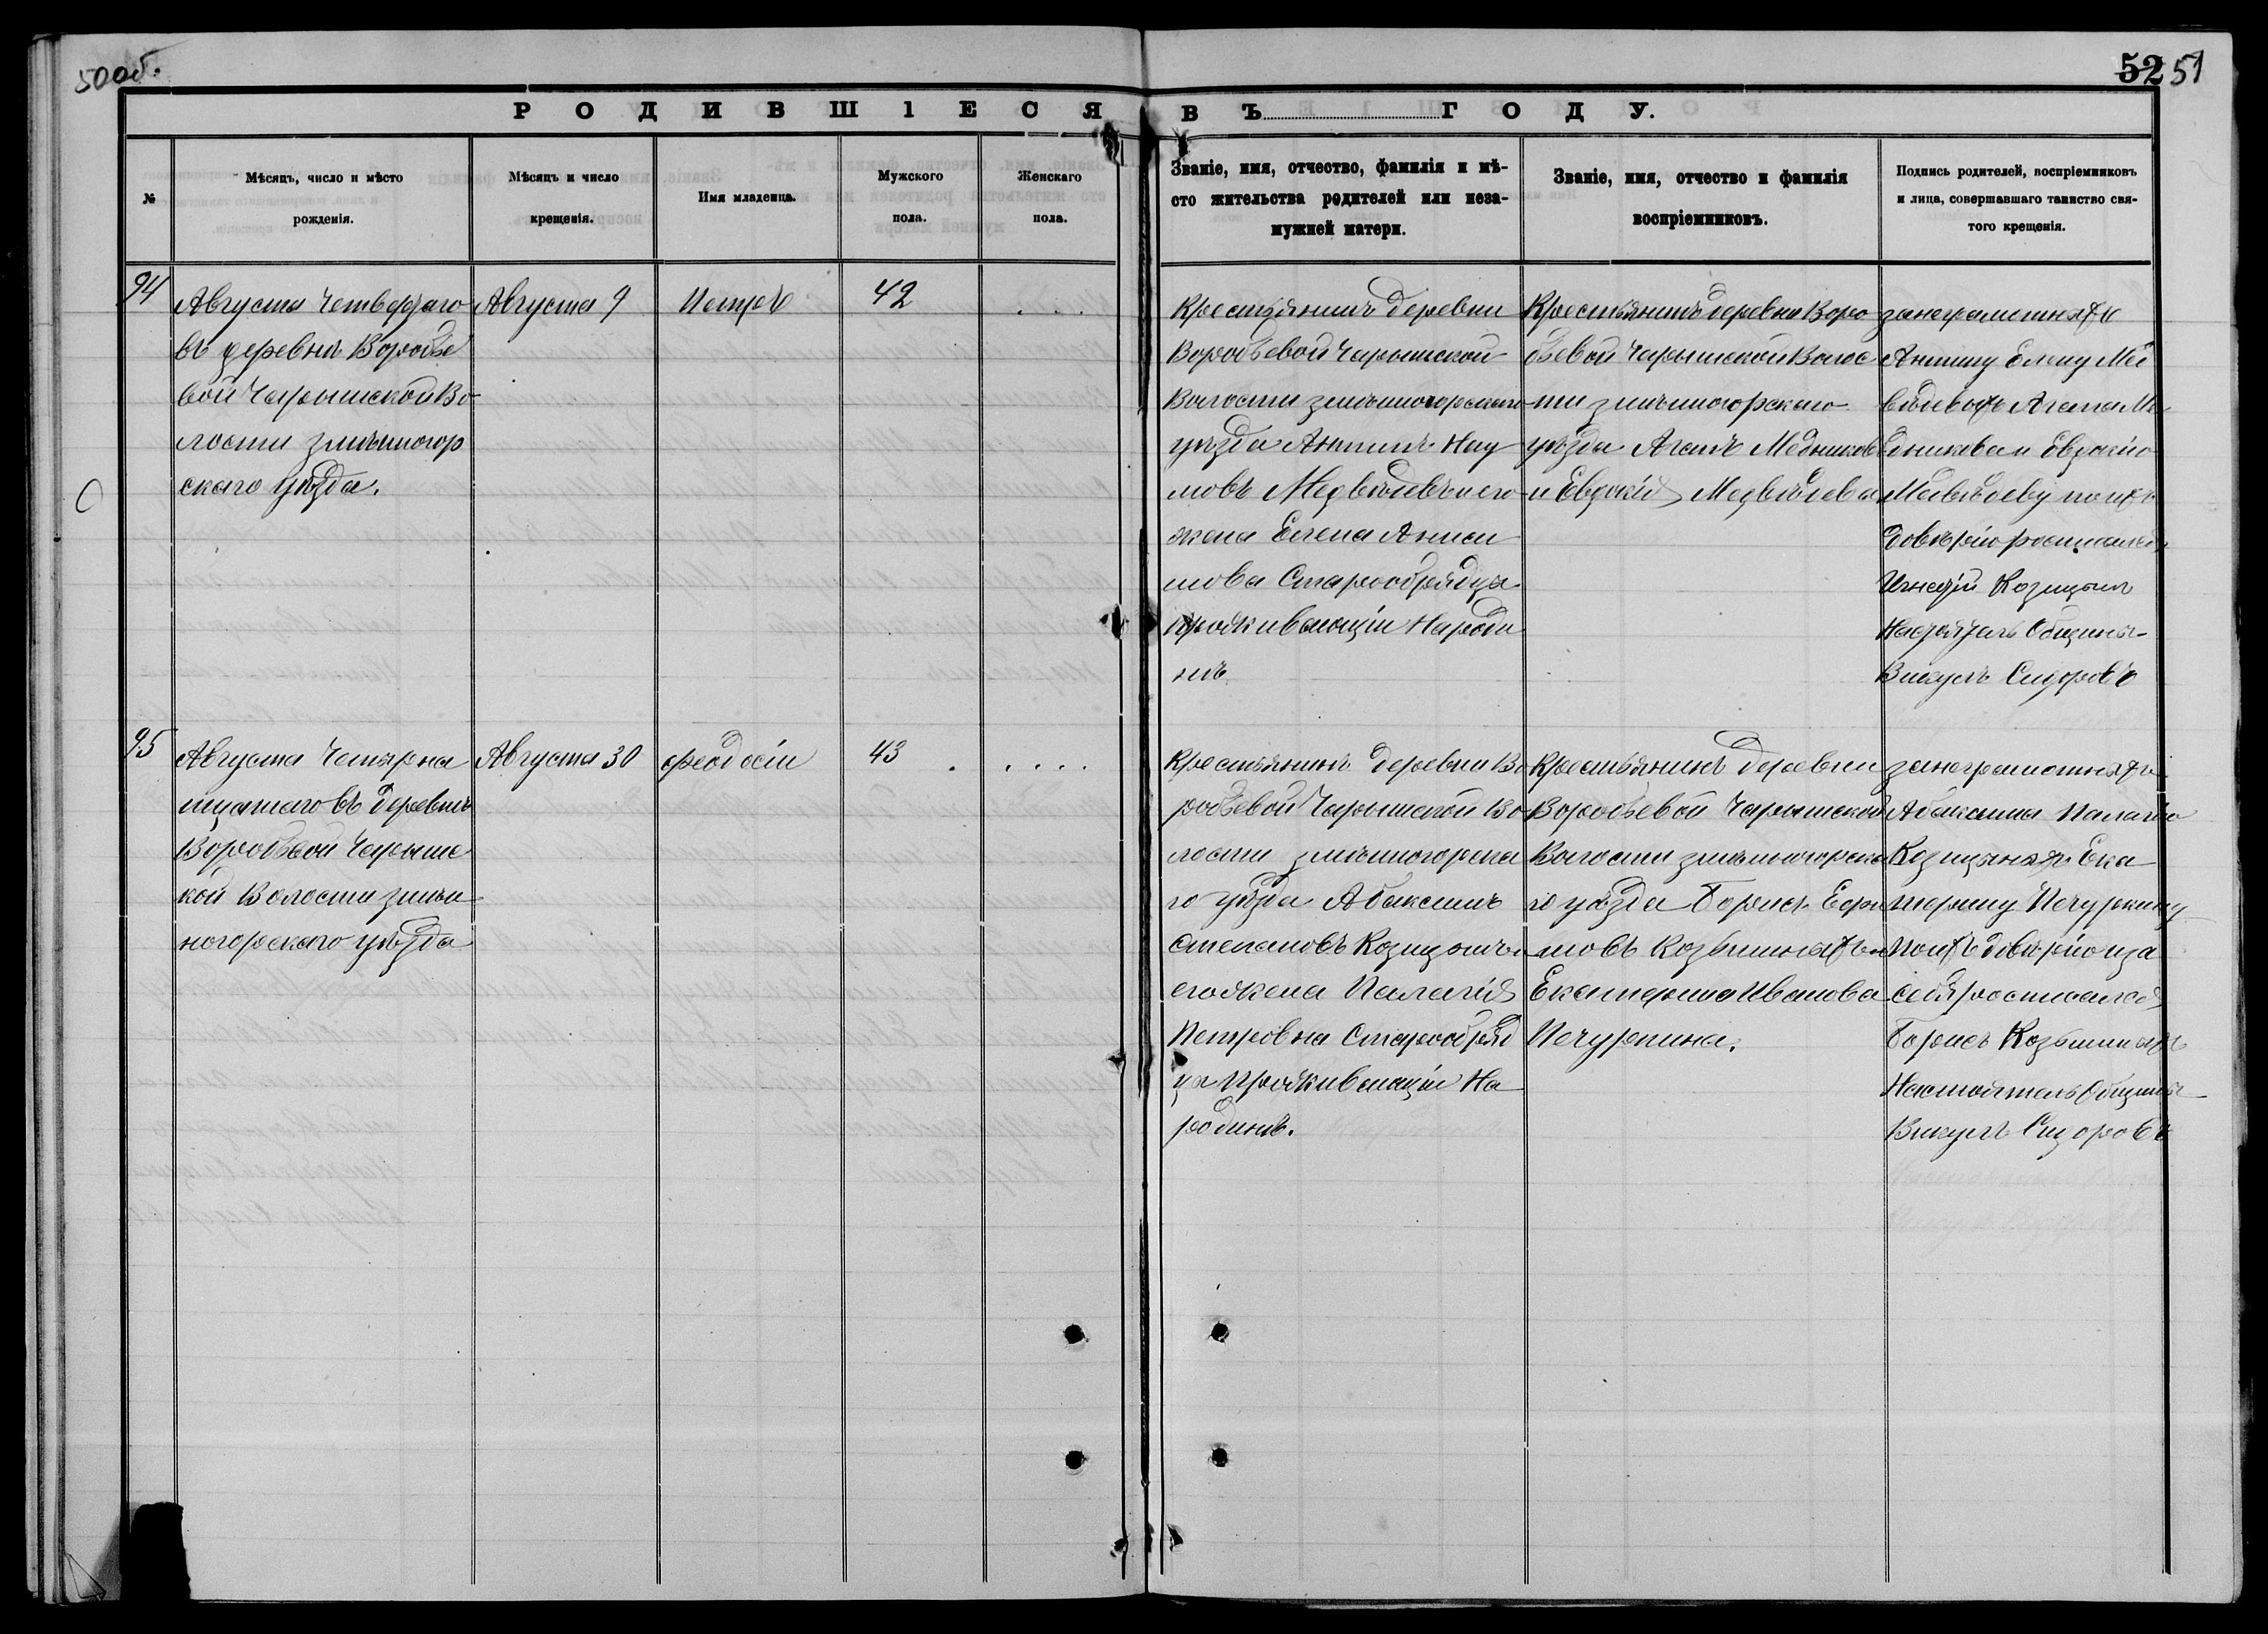 50об.
52 51
РОДИВШІЕСЯ ВЪ ГОДУ.
№
Мѣсяцъ, число и мѣсто
рожденія.
Мѣсяцъ и число
крещенія.
Имя младенца.
Мужского
пола.
Женскаго
пола.
Званіе, имя, отчество, фамилія и мѣ-
сто жительства родителей или неза-
мужней матери.
Званіе, имя, отчество и фамилія
воспріемниковъ.
Подпись родителей, воспріемниковъ
и лица, совершавшаго таинство свя-
того крещенія.
94
Августа Четвертаго
въ деревнѣ Воробье
вой Чарышской Во
лости змѣиногор
скаго уѣзда.
Августа 9
Петръ
42
Крестьянинъ деревни
Воробьевой Чарышской
Волости змѣиногорскаго
уѣзда Антипъ Нау
мовъ Медвѣдевъ и его
жена Елена Аниси
мова Старообрядцы
проживающіи На роди
нѣ
Крестьянинъ деревни Воро
бьевой Чарышской Волос
ти змѣиногорскаго
уѣзда Агапъ Медников
и Евдокія Медвѣдева
занеграмотныхъ
Антипу Елену Мед
вѣдевыхъ Агапа Ме
дникова и Евдокію
Медвѣдеву по ихъ
довѣрію росписался
Игнатій Козицынъ
Настоятель Общины
Викулъ Сидоровъ
95
Августа Четырна
тцатаго въ деревнѣ
Воробьевой Чарышс
кой Волости змѣи
ногорскаго уѣзда
Августа 30
феодосіи
43
Крестьянинъ деревни Во
робьевой Чарышской Во
лости змѣиногорска
го уѣзда Абакумъ
Степановъ Козицынъ и
его жена Палагія
Петровна Старообряд
цы Проживающіи На
родинѣ.
Крестьянинъ деревни
Воробьевой Чарышской
Волости змѣиногорска
го уѣзда Борисъ Ефи
мовъ Козьминыхъ и
Екатерина Иванова
Печуркина.
занеграмотныхъ
Абакума Палагію
Козицыныхъ Ека
терину Печуркину
Поихъ довѣрію и за
себя росписался
Борисъ Козьминыхъ
Настоятель Общины
Викулъ Сидоровъ